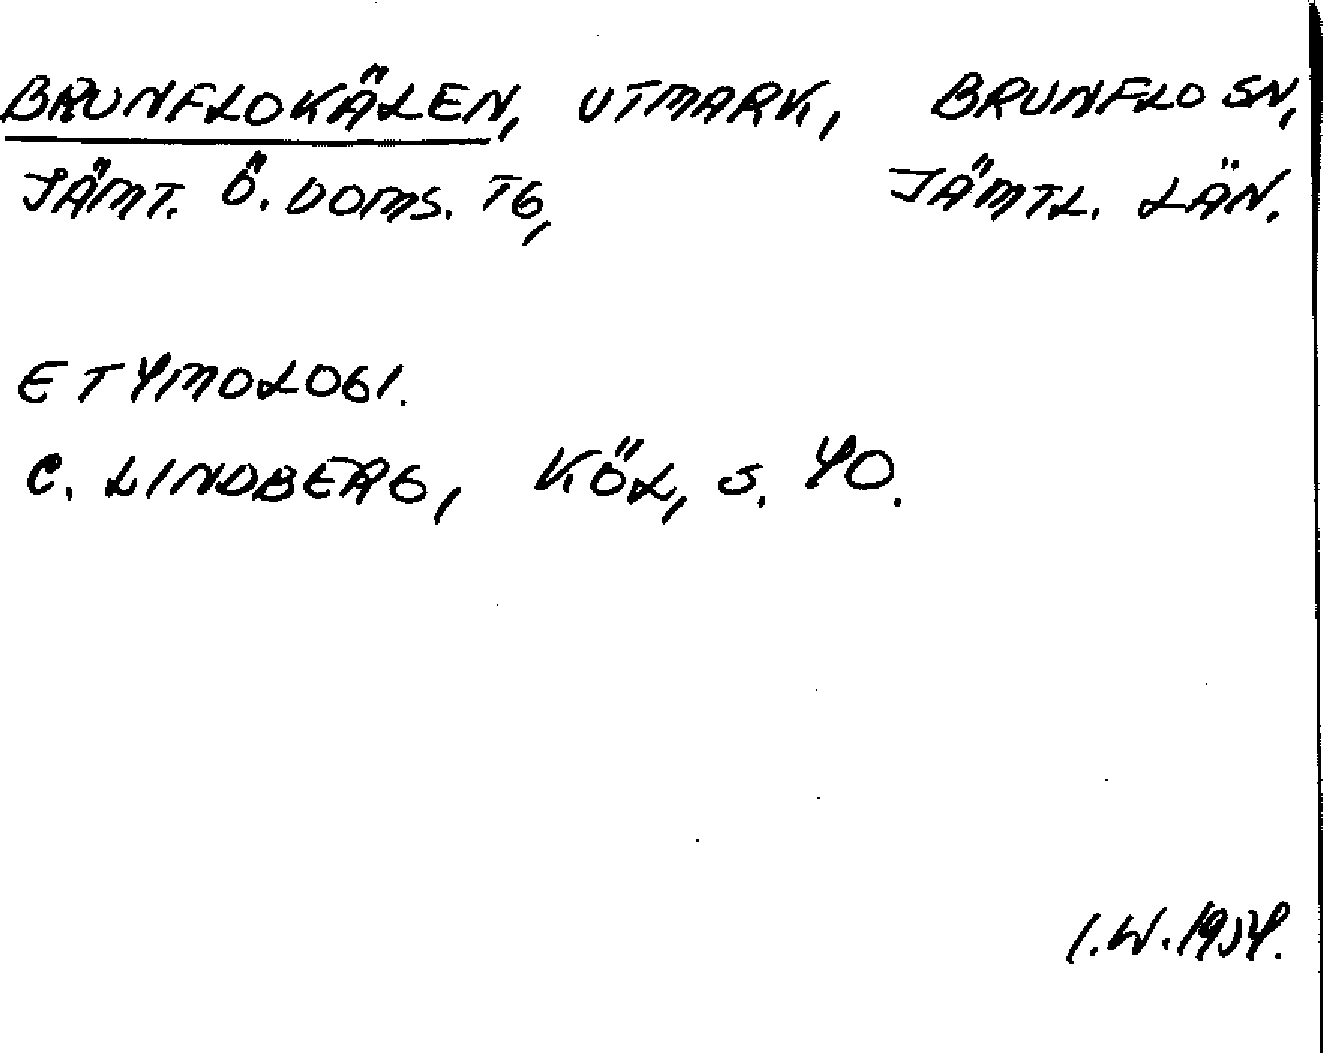 BRUNFLOKÄLEN, UTMARK, BRUNFLO SN,
JÄMT. Ö. DOMS. TG, JÄMTL. LÄN.
ETYMOLOGI.
C. LINDBERG, KÖL, S. 40.
I.W. 1954.